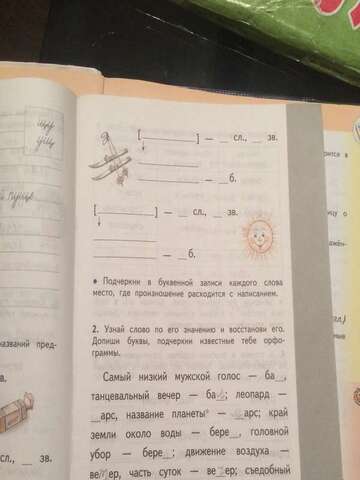 [ ] — __ сл., __ зв.
— __б.
[ ] — __ сл., __ зв.
— __б.
• Подчеркни в буквенной записи каждого слова
место, где произношение расходится с написанием.
2. Узнай слово по его значению и восстанови его.
Допиши буквы, подчеркни известные тебе орфо-
граммы.
Самый низкий мужской голос — ба__,
танцевальный вечер — ба__; леопард —
__арс, название планеты — __арс; край
земли около воды — бере__, головной
убор — бере__; движение воздуха —
ве__ер, часть суток — ве__ер; съедобный
названий пред-
сл., __ зв.